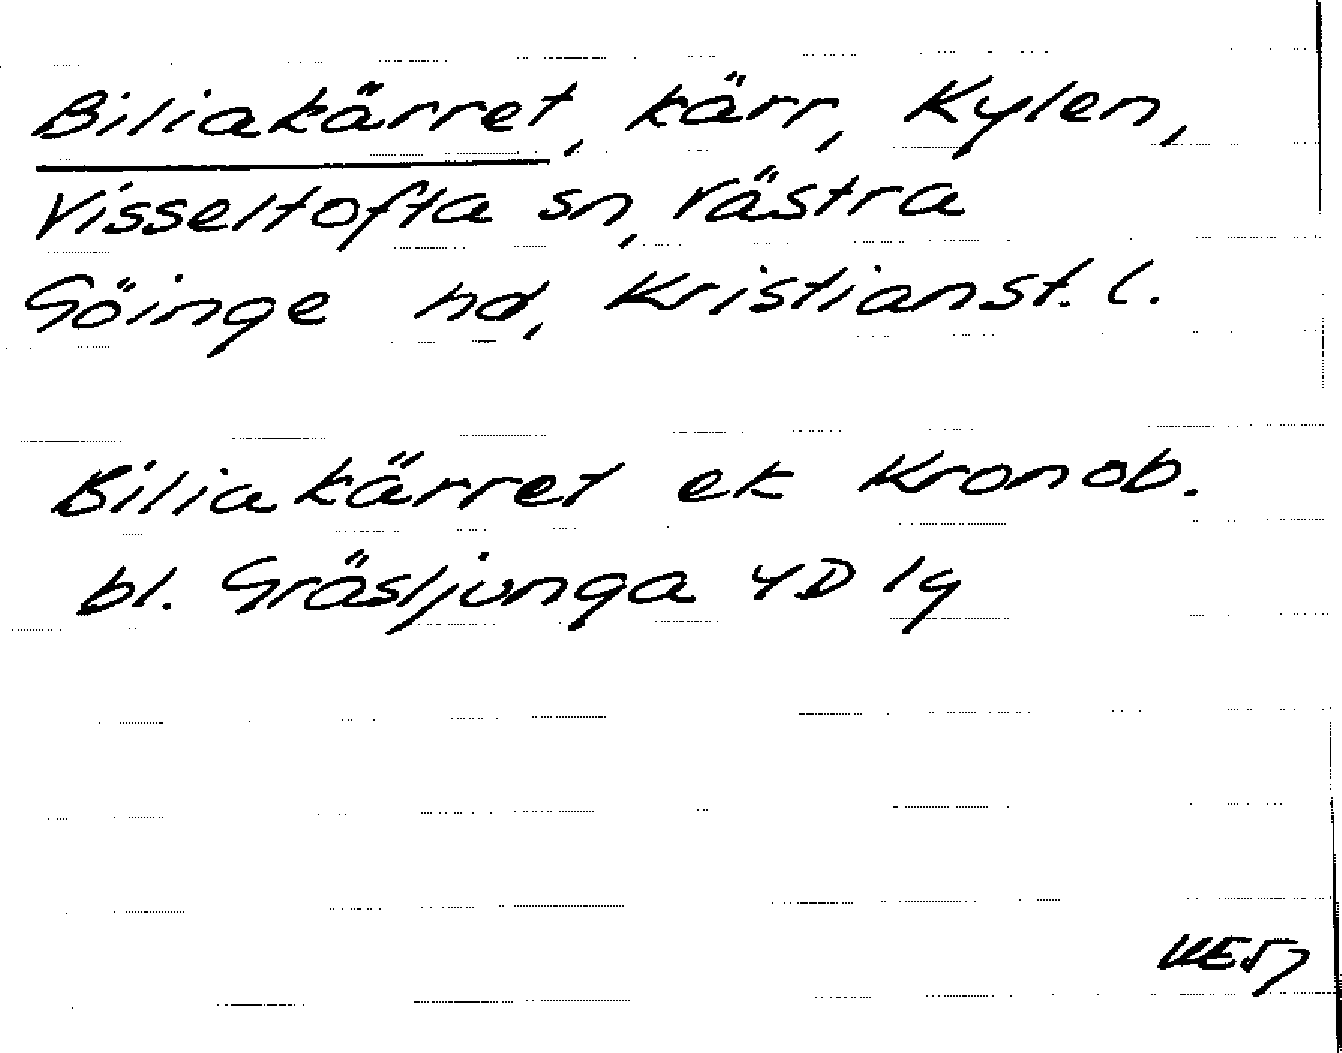 Biliakärret, kärr, Kylen,
Visseltofta sn, Västra
Göinge hd, Kristianst. l.
Biliakärret ek Kronob.
bl. Gräsljunga 4D 1g